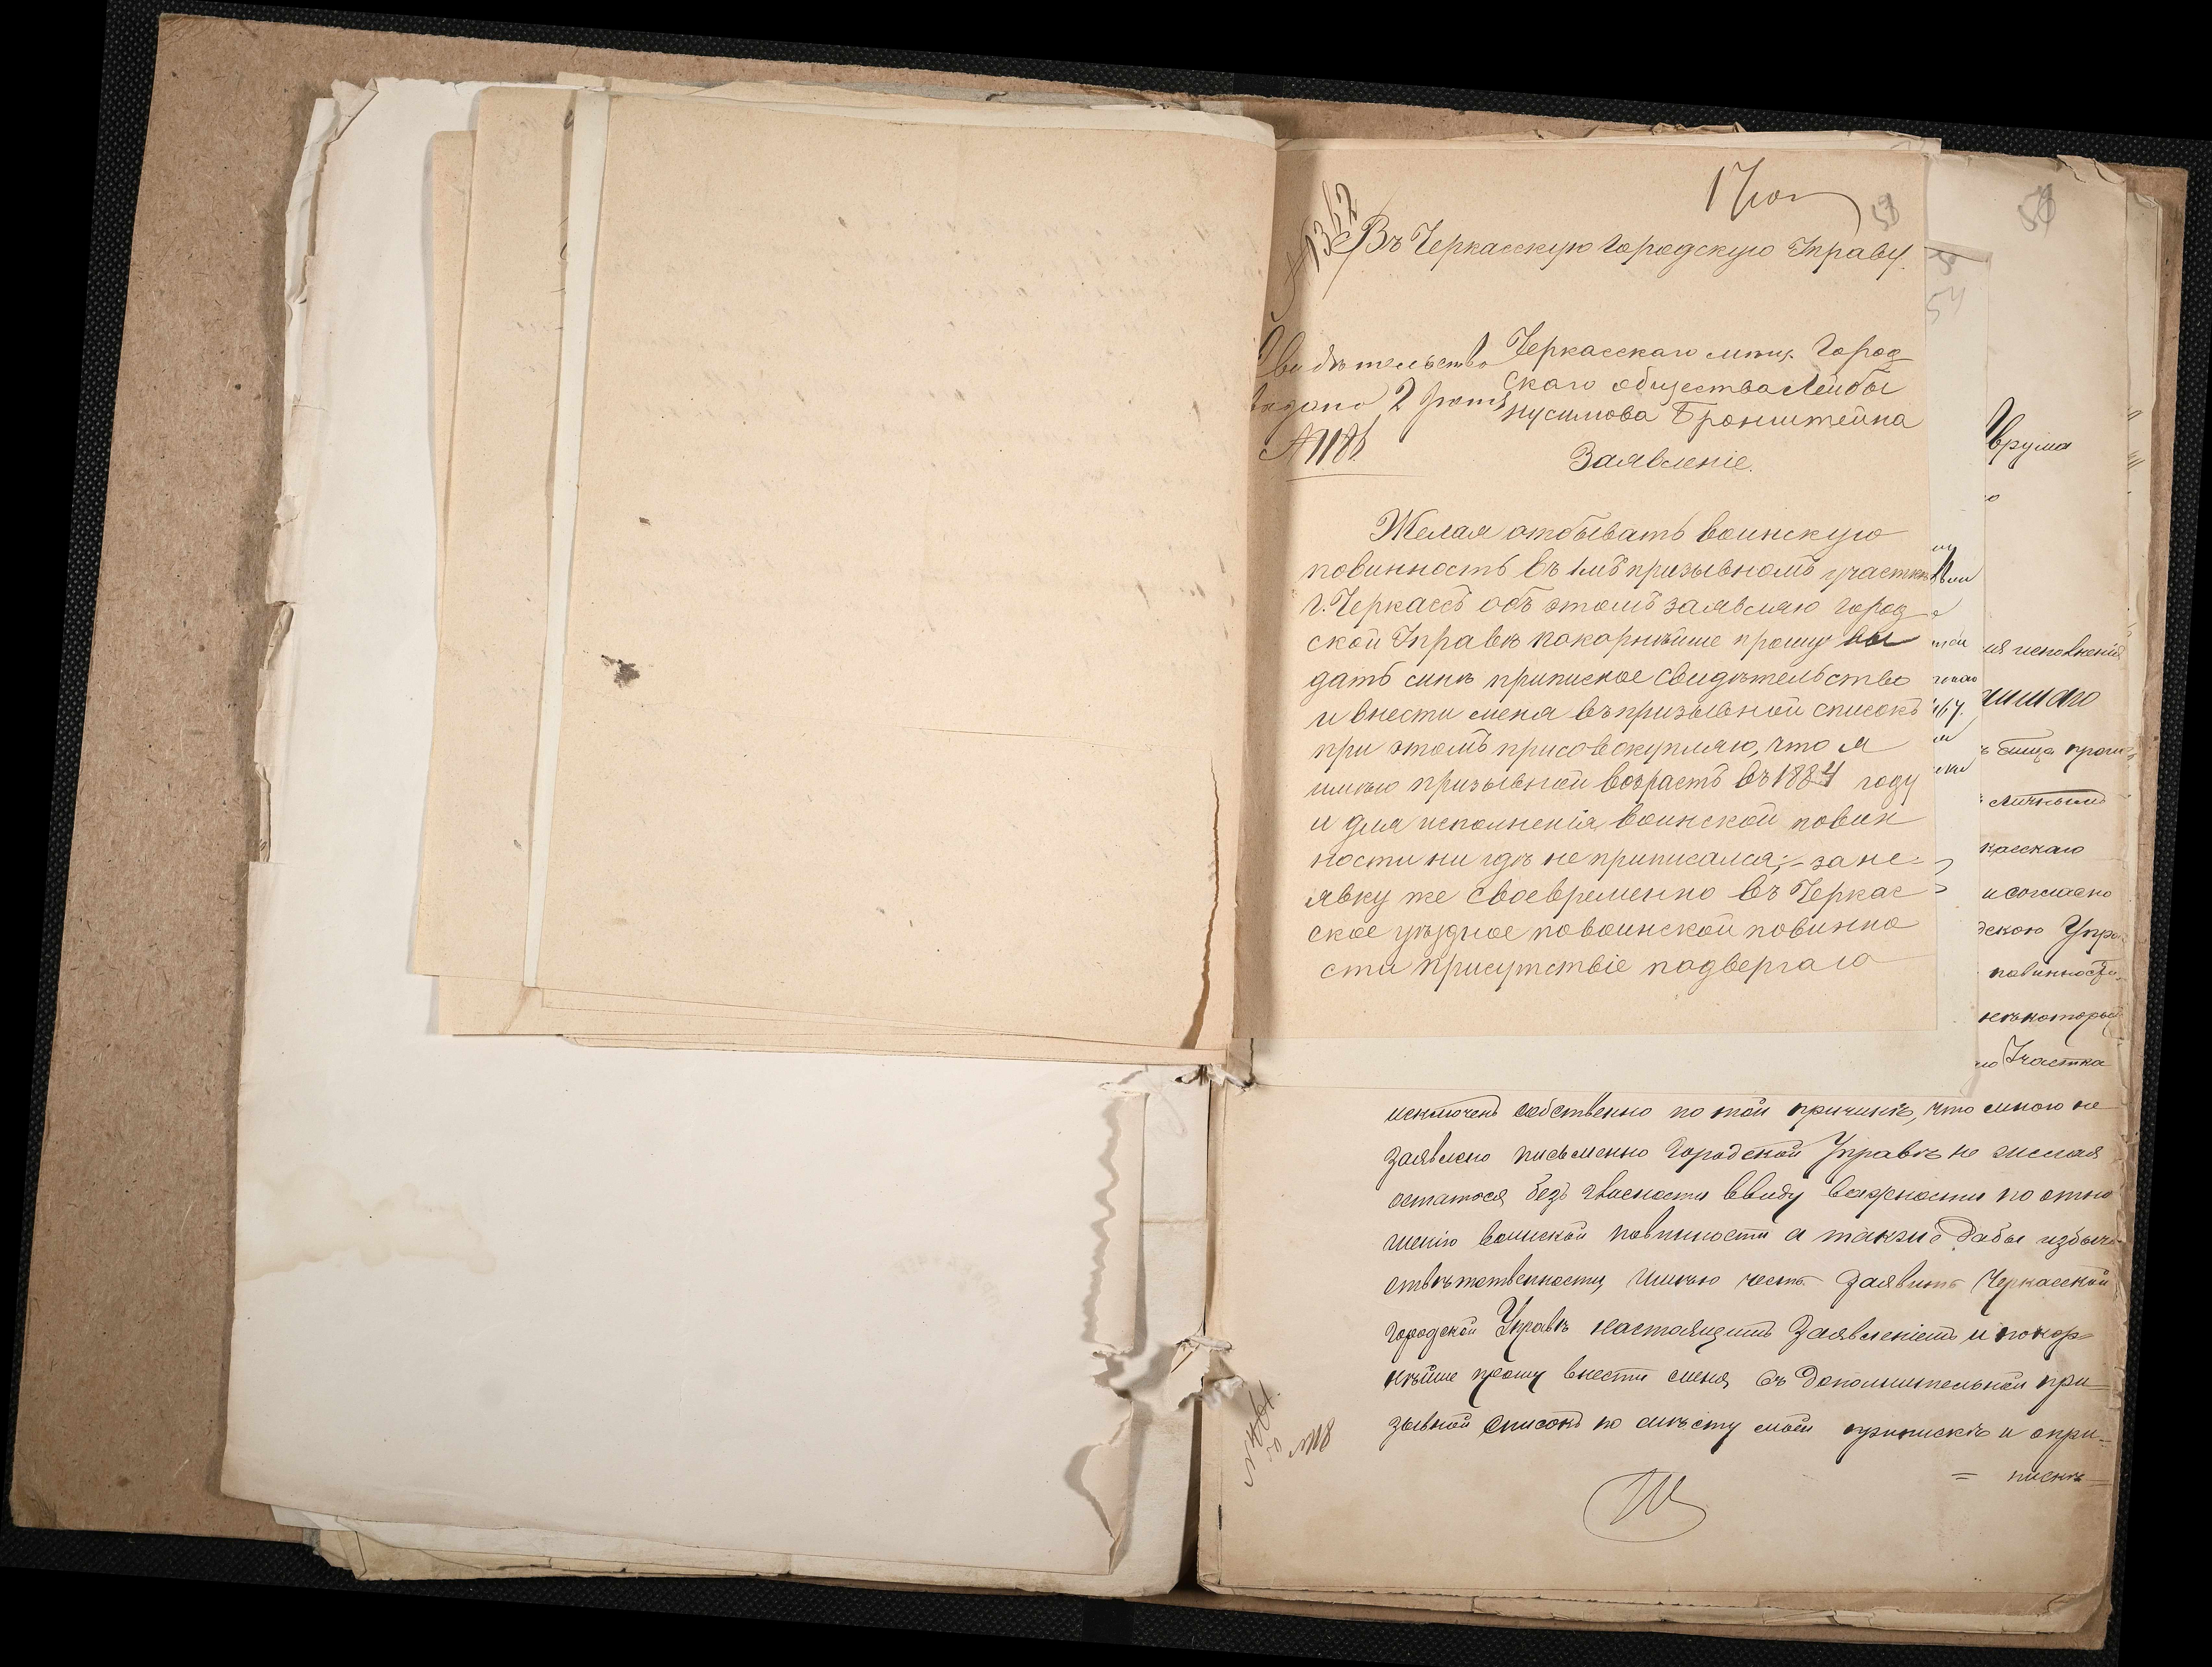 17
53
№ 1362
Въ Черкасскую Городскую Управу.
Свидѣтельство
выдано 2
№ 1181
Черкасскаго мѣщ. Город
скаго общества Лейбы
Нусимова Бронштейна
Заявленіе.
Желая отбывать воинскую
повинность въ 1мъ призывномъ участкѣ
г. Черкассъ объ этомъ заявляю город
ской Управѣ покорнѣйше прошу вы
дать мнѣ приписное свидѣтельство
и внести меня въ призывной списокъ
при этомъ присовокупляю, что я
имѣю призывной возрастъ въ 1884 году
и для исполненія воинской повин
ности ни гдѣ не приписался; - за не-
явку же своевременно въ Черкас
ское уѣздное по воинской повинно
сти присутствіе подвергаю
54
58
Врума
ия исполненія
касскаго
и согласно
дскою Упра-
повинности
некоторый
Участка
исключенъ собственно по той причинѣ, что мною не
заявлено письменно Городской Управѣ не желая
остаться безъ гласности ввиду важности по отно
шенію воинской повинности а также дабы избѣжа
отвѣтственности, имѣю честь заявить Черкасской
городской Управѣ настоящимъ Заявленіемъ и покор
нѣйше прошу внести меня въ дополнительной при-
зывной списокъ по мѣсту моей припискѣ и о при-
= пискѣ-
№ 18